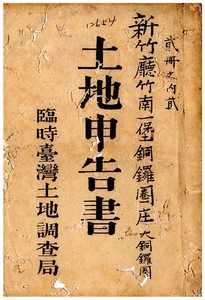 貳冊之内貳
新竹廳竹南一堡銅鑼圈庄大銅鑼圈
土地申告書
臨時臺灣土地調查局